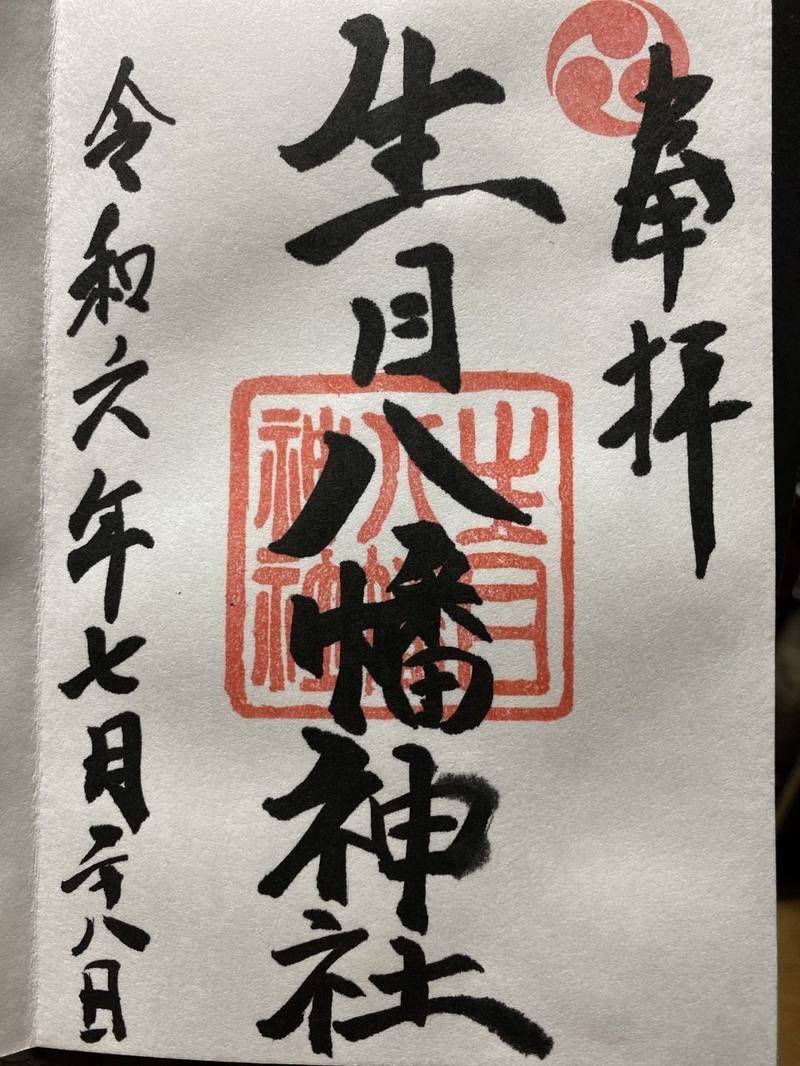 奉拝
生目八幡神社
令和六年七月二十八日
生目
八幡
神社